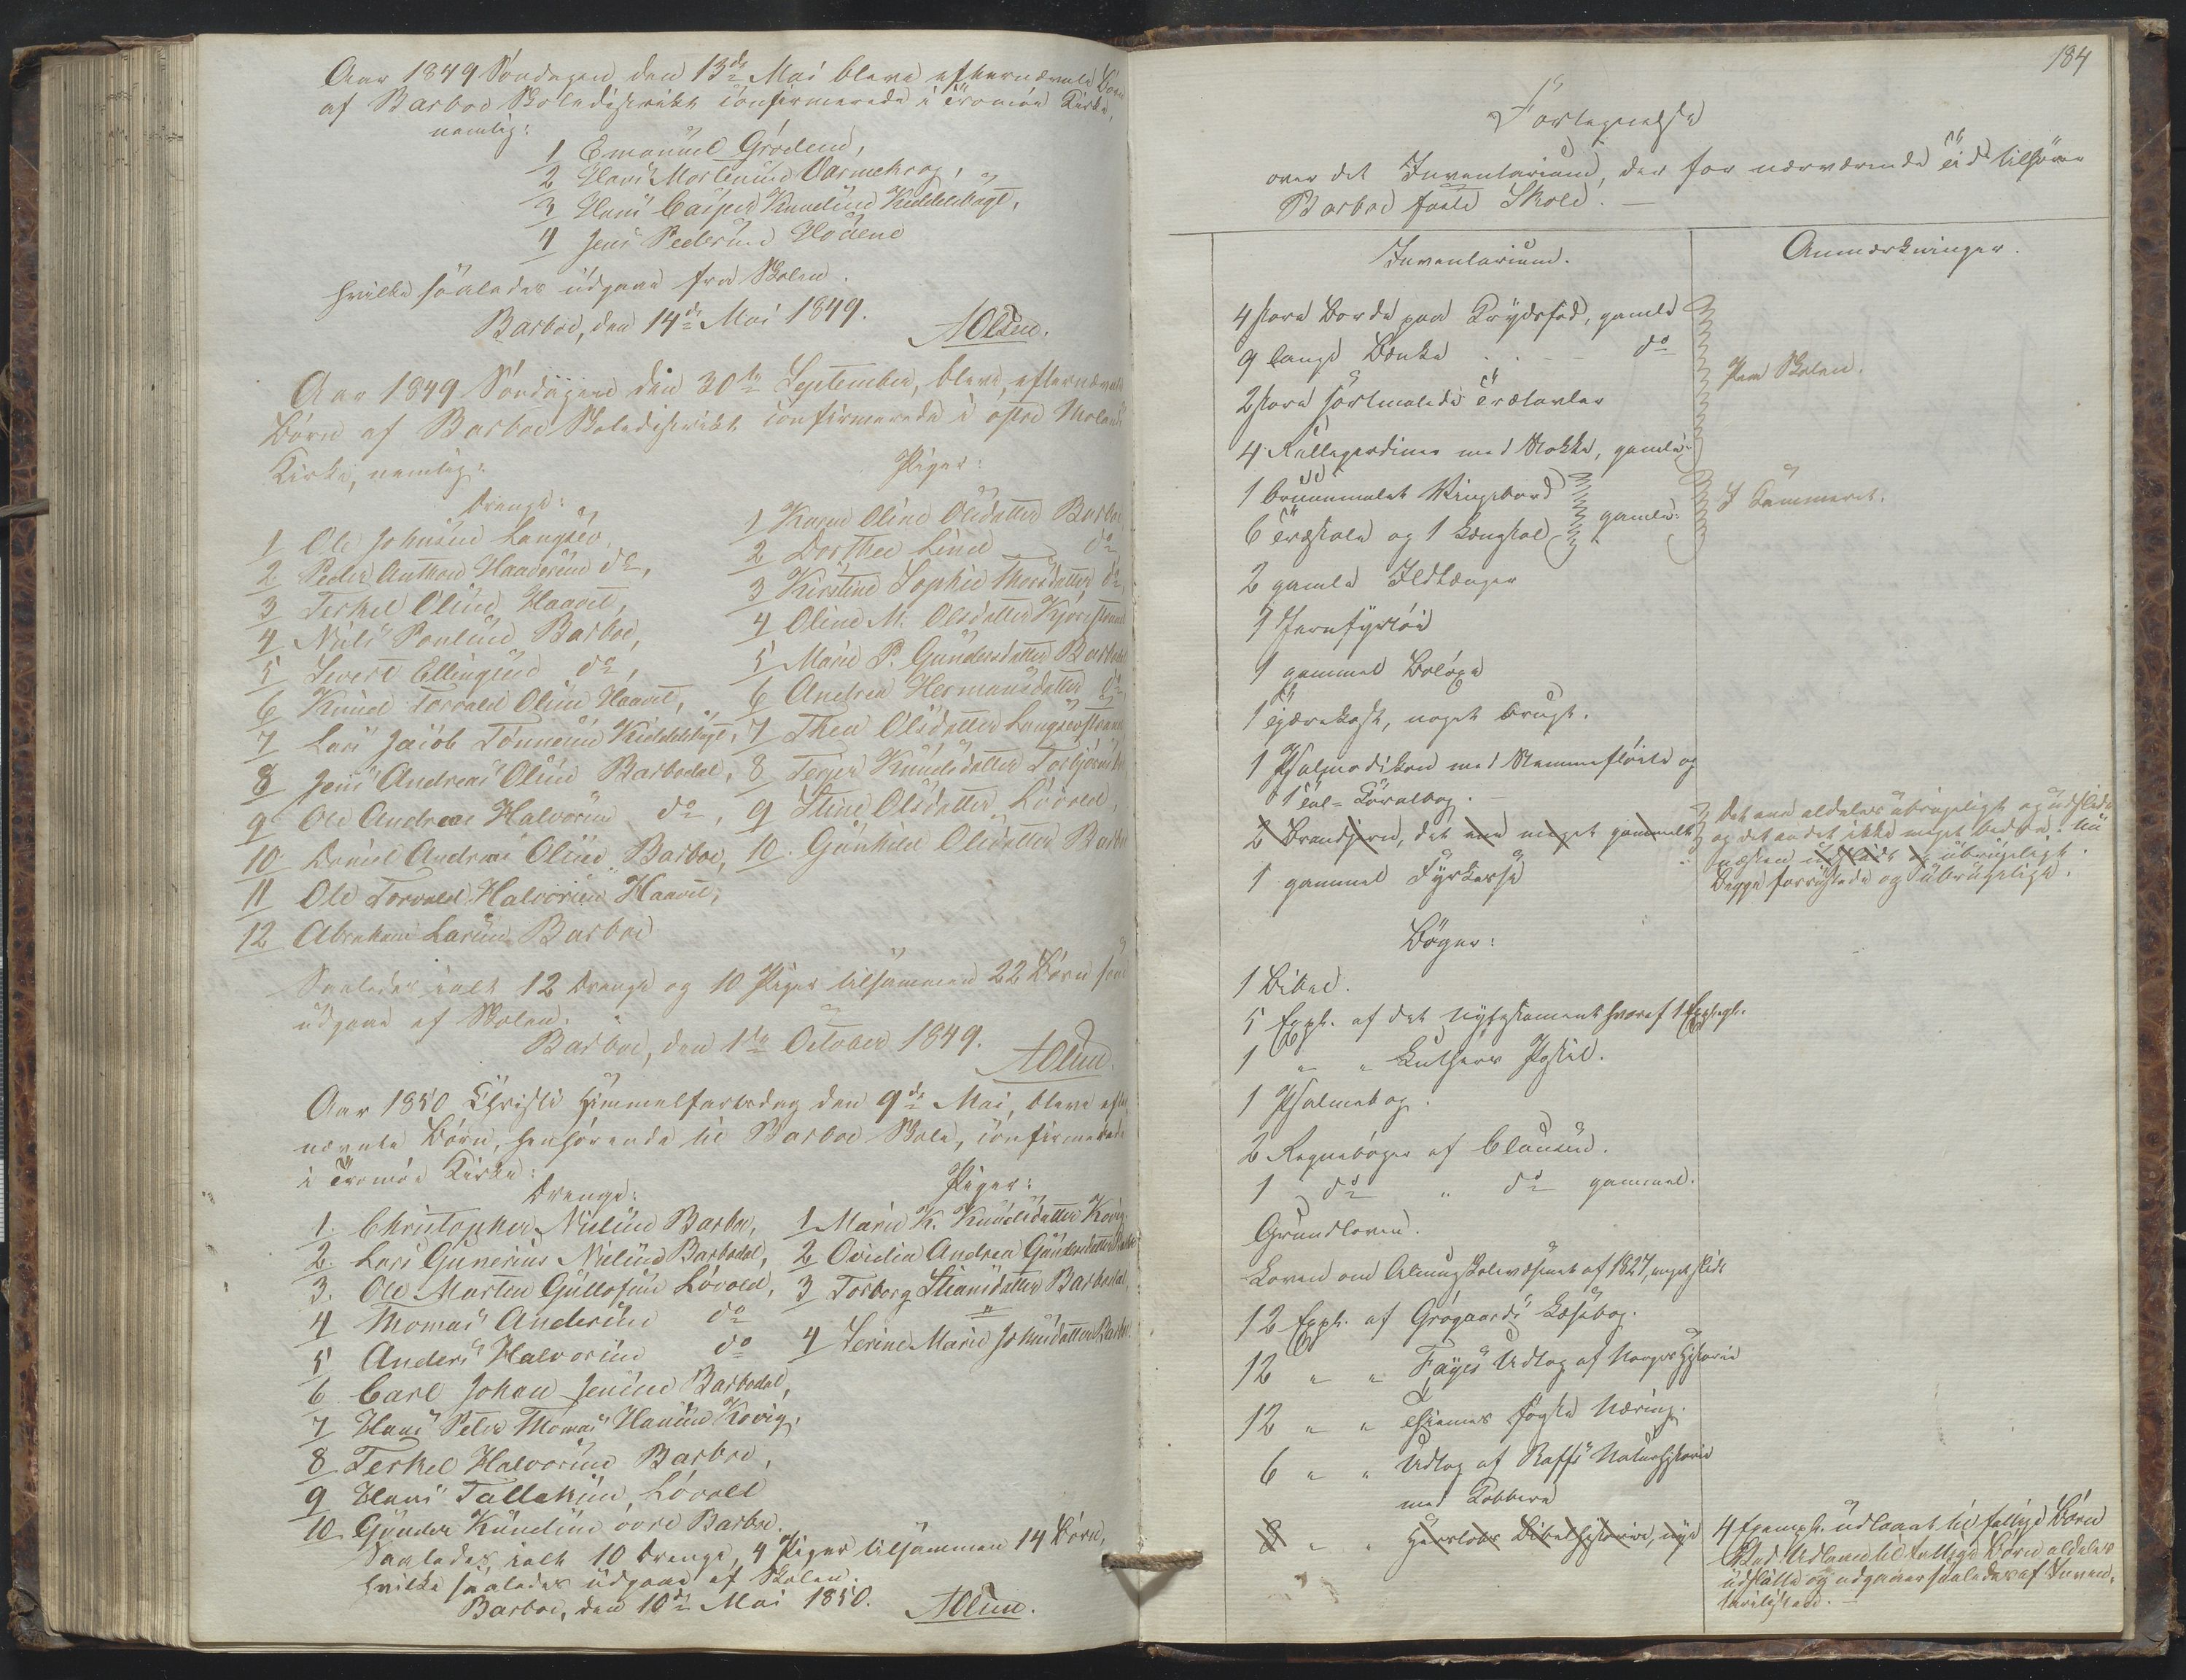 Aar 1849 Søndagen den 13de Mai bleve efternævnte Børn
af Barboe Skoledistrikt confirmerede i Tromøe Kirke,
nemlig:
1 Emanuel Grødem,
2 Hans Mortensen Varmekrog,
3 Hans Casper Knudsen Kiddelsbugt,
4 Jens Pedersen
hvilke saaledes udgaae fra Skolen.
Barboe, den 14de Mai 1849.
AOlsen.
Aar 1849 Søndagen den 30te September, bleve efternævnte
Børn af Barboe Skoledistrikt confirmerede i østre Molands
Kirke, nemlig:
Drenge:
1 Ole Johnsen Langsev,
2 Peder Anthon Haagensen do,
3 Terkel Olsen Haavet,
4 Niels Poulsen Barboe,
5 Sivert Ellingsen do,
6 Knud Torvald Olsen Haavet,
7 Lars Jacob Tønnesen Kiddelsbugt,
8 Jens Andreas Olsen Barbodal,
9 Ole Andreas Halvorsen do,
10 Daniel Andreas Olsen Barboe,
11 Ole Torvald Halvorsen Haavet,
12 Abraham Larsen Barboe
Piger:
1 Karen Oline Olsdatter Barboe
2 Dorthea Line do
3 Kirstine Sophie Thorsdatter do,
4 Oline M. Olsdatter
5 Maren P. Gundersdatter Barbodal
6 Andrea Hermansdatter do
7 Thea Olsdatter Langsevstrand
8 Terjer Knudsdatter
9 Stine Olsdatter Løvold,
10. Gunhild Olsdatter Barboe
Saaledes ialt 12 Drenge og 10 Piger tilsammen 22 Børn som
udgaae af Skolen.
Barboe, den 1ste October 1849.
AOlsen.
Aar 1850 Christi Himmelfartsdag den 9de Mai, bleve efter-
nævnte Børn, henhørende til Barboe Skole, confirmerede
i Tromøe Kirke:
Drenge:
1. Christopher Nielsen Barboe,
2. Lars Gunerius Nielsen Barbodal,
3. Ole Morten Gullofsen Løvold,
4 Thomas Andersen do
5 Anders Halvorsen do
6 Carl Johan Jensen Barbodal,
7 Hans Peter Thomas Hansen Kovig,
8 Terkel Halvorsen Barboe,
9 Hans Tallaksen Løvold
10 Gunder Knudsen øvre Barboe.
Piger:
1 Maren K. Knudsdatter Kovig.
2 Ovidia Andrea Gundersdatter Barboe
3 Torborg Stiansdatter Barbodal,
4 Serine Marie Johnsdatter Barboe.
Saaledes ialt 10 Drenge, 4 Piger tilsammen 14 Børn,
hvilke saaledes udgaae af Skolen.
Barboe, den 10de Mai 1850. AOlsen.
184
Fortegnelse
over det Inventarium, der for nærværende Tid tilhører
Barboe faste Skole.
Inventarium.
Anmærkninger.
4 store Borde paa Krydsfod, gamle
9 lange Bænke . . - do
2 store sortmalede Trætavler
4 Rullegardiner med Stokke, gamle
Paa Skolen.
1 bruunmalet Vingebord
6 Træstole og 1 Lænstol gamle.
I Kammeret.
2 gamle Ildtænger
1 Jernfyrtøi
1 gammel Boløxe
1 Tjærekost, noget brugt.
1 Psalmodikon med Stemmefløite og
1 Tal-Coralbog. -
2 Brandjern, det ene meget gammelt
Det ene aldeles ubrugeligt og udslidt
og det andet ikke meget bedre. Nu
næsten udslidt og ubrugeligt.
1 gammel Fyrkasse
Begge forrustede og ubrugelige.
Bøger:
1 Bibel.
5 Expl. af det nye Testament hvoraf 1 Expl.
1 " " Luthers Postil.
1 Psalmebog.
2 Regnebøger af Clausen.
1 do " do gammel.
Grundloven.
Loven om Almueskolevæsenet af 1827, meget slidt
12 Expl. af Grøgaards Læsebog.
12 " " Fayes Udtog af Norges Historie
12 " " første Næring.
6 " " Udtog af Raffs Naturhistorie
med Kobbere
8 " " Herslebs Bibelhistorie, nye
4 Exempl. udlaant til fattige Børn
Ved Udlaan til fattige Børn aldeles
udslidte og udgaaer saaledes af Inven-
tarielisten. -